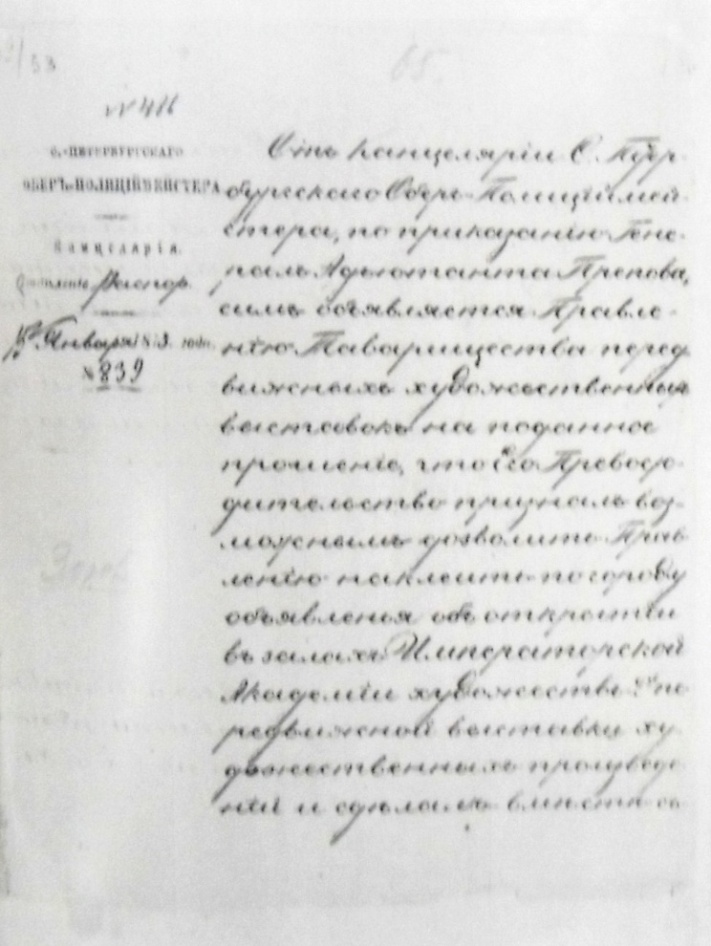 65.
С.-ПЕТЕРБУРГСКАГО
ОБЕРЪ-ПОЛИЦІЙМЕЙСТЕРА
Канцелярія.
Января 1873 года.
№ 839
Отъ Канцеляріи С. Петер-
бургскаго Оберъ-Полиціймей-
стера, по приказанію Гене-
ралъ Адъютанта Трепова,
симъ объявляется Правле-
нію Товарищества перед
вижныхъ художественныхъ
выставокъ на поданное
прошеніе, что Его Превосхо-
дительство призналъ воз-
можнымъ дозволить Прав-
ленію наклеить по городу
объявленія объ открытіи
въ залахъ Императорской
Академіи художествъ 2й пе
редвижной выставки ху-
дожественныхъ произведе-
ній и сдѣлалъ вмѣстѣ съ